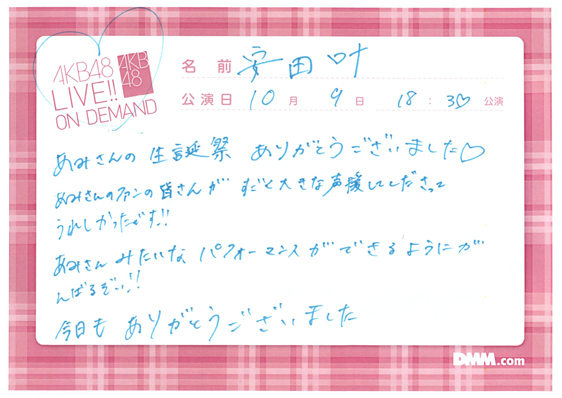 AKB48
LIVE!!
ON DEMAND
AKB
48
名前 安田叶
公演日 10月 9日 18:30 公演
あみさんの 生誕祭 ありがとうございました♡
あみさんのファンの皆さんが すごく大きな声援してくださって
うれしかったです!!
あみさん みたいな パフォーマンスができるようにが
んばるぞい!!
今日も ありがとうございました
DMM.com